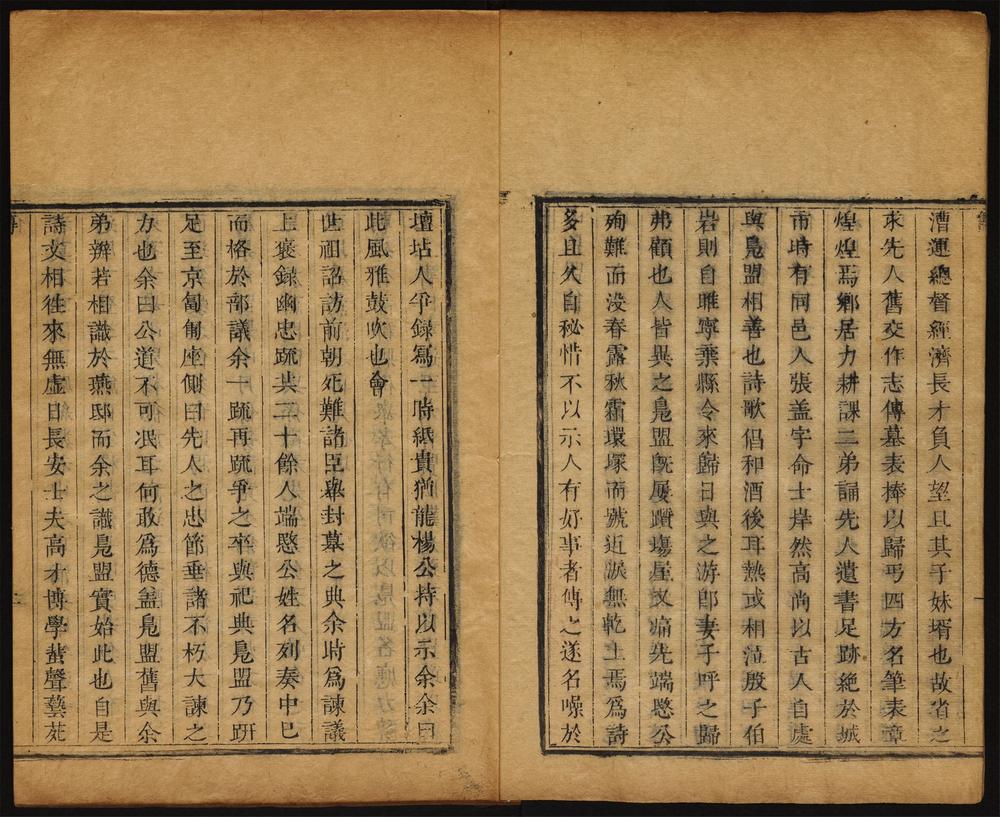 漕運總督經濟長才負人望且其子妹壻也故省之
求先人舊交作志傳墓表捧以歸丐四方名筆表章
煌煌焉鄉居力耕課二弟誦先人遺書足跡絕於城
市時有同邑人張盖字命士岸然高尚以古人自處
與鳧盟相善也詩歌倡和酒後耳熱或相泣殷子伯
岩則自睢寧棄縣令來歸日與之游卽妻子呼之歸
弗顧也人皆異之鳧盟旣屢躓塲屋又痛先端愍公
殉難而没春露秋霜環塚而號近淚無乾土焉爲詩
多且久自秘惜不以示人有好事者傳之遂名噪於
壇坫人爭録寫一時紙貴猶龍楊公持以示余余曰
此風雅鼓吹也會
世祖詔訪前朝死難諸臣舉封墓之典余時爲諫議
上褒録幽忠疏共二十餘人端愍公姓名列奏中已
而格於部議余一疏再疏爭之卒與祀典鳧盟乃趼
足至京匍匐座側曰先人之忠節垂諸不朽大諫之
力也余曰公道不可泯耳何敢爲德盖鳧盟舊與余
弟辨若相識於燕邸而余之識鳧盟實始此也自是
詩文相徃來無虛日長安士夫高才博學蜚聲藝苑